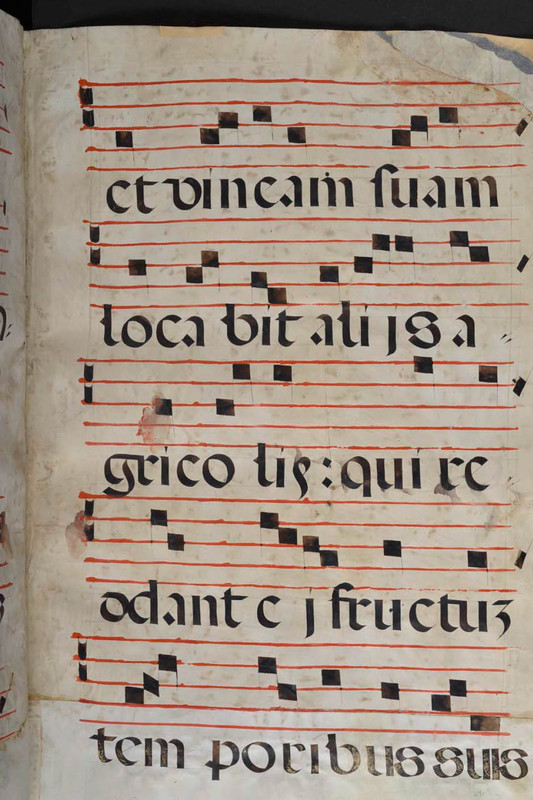 et vineam suam
loca bit ali js a
grico lis : qui re
odant e j fructuz
tem poribus suis